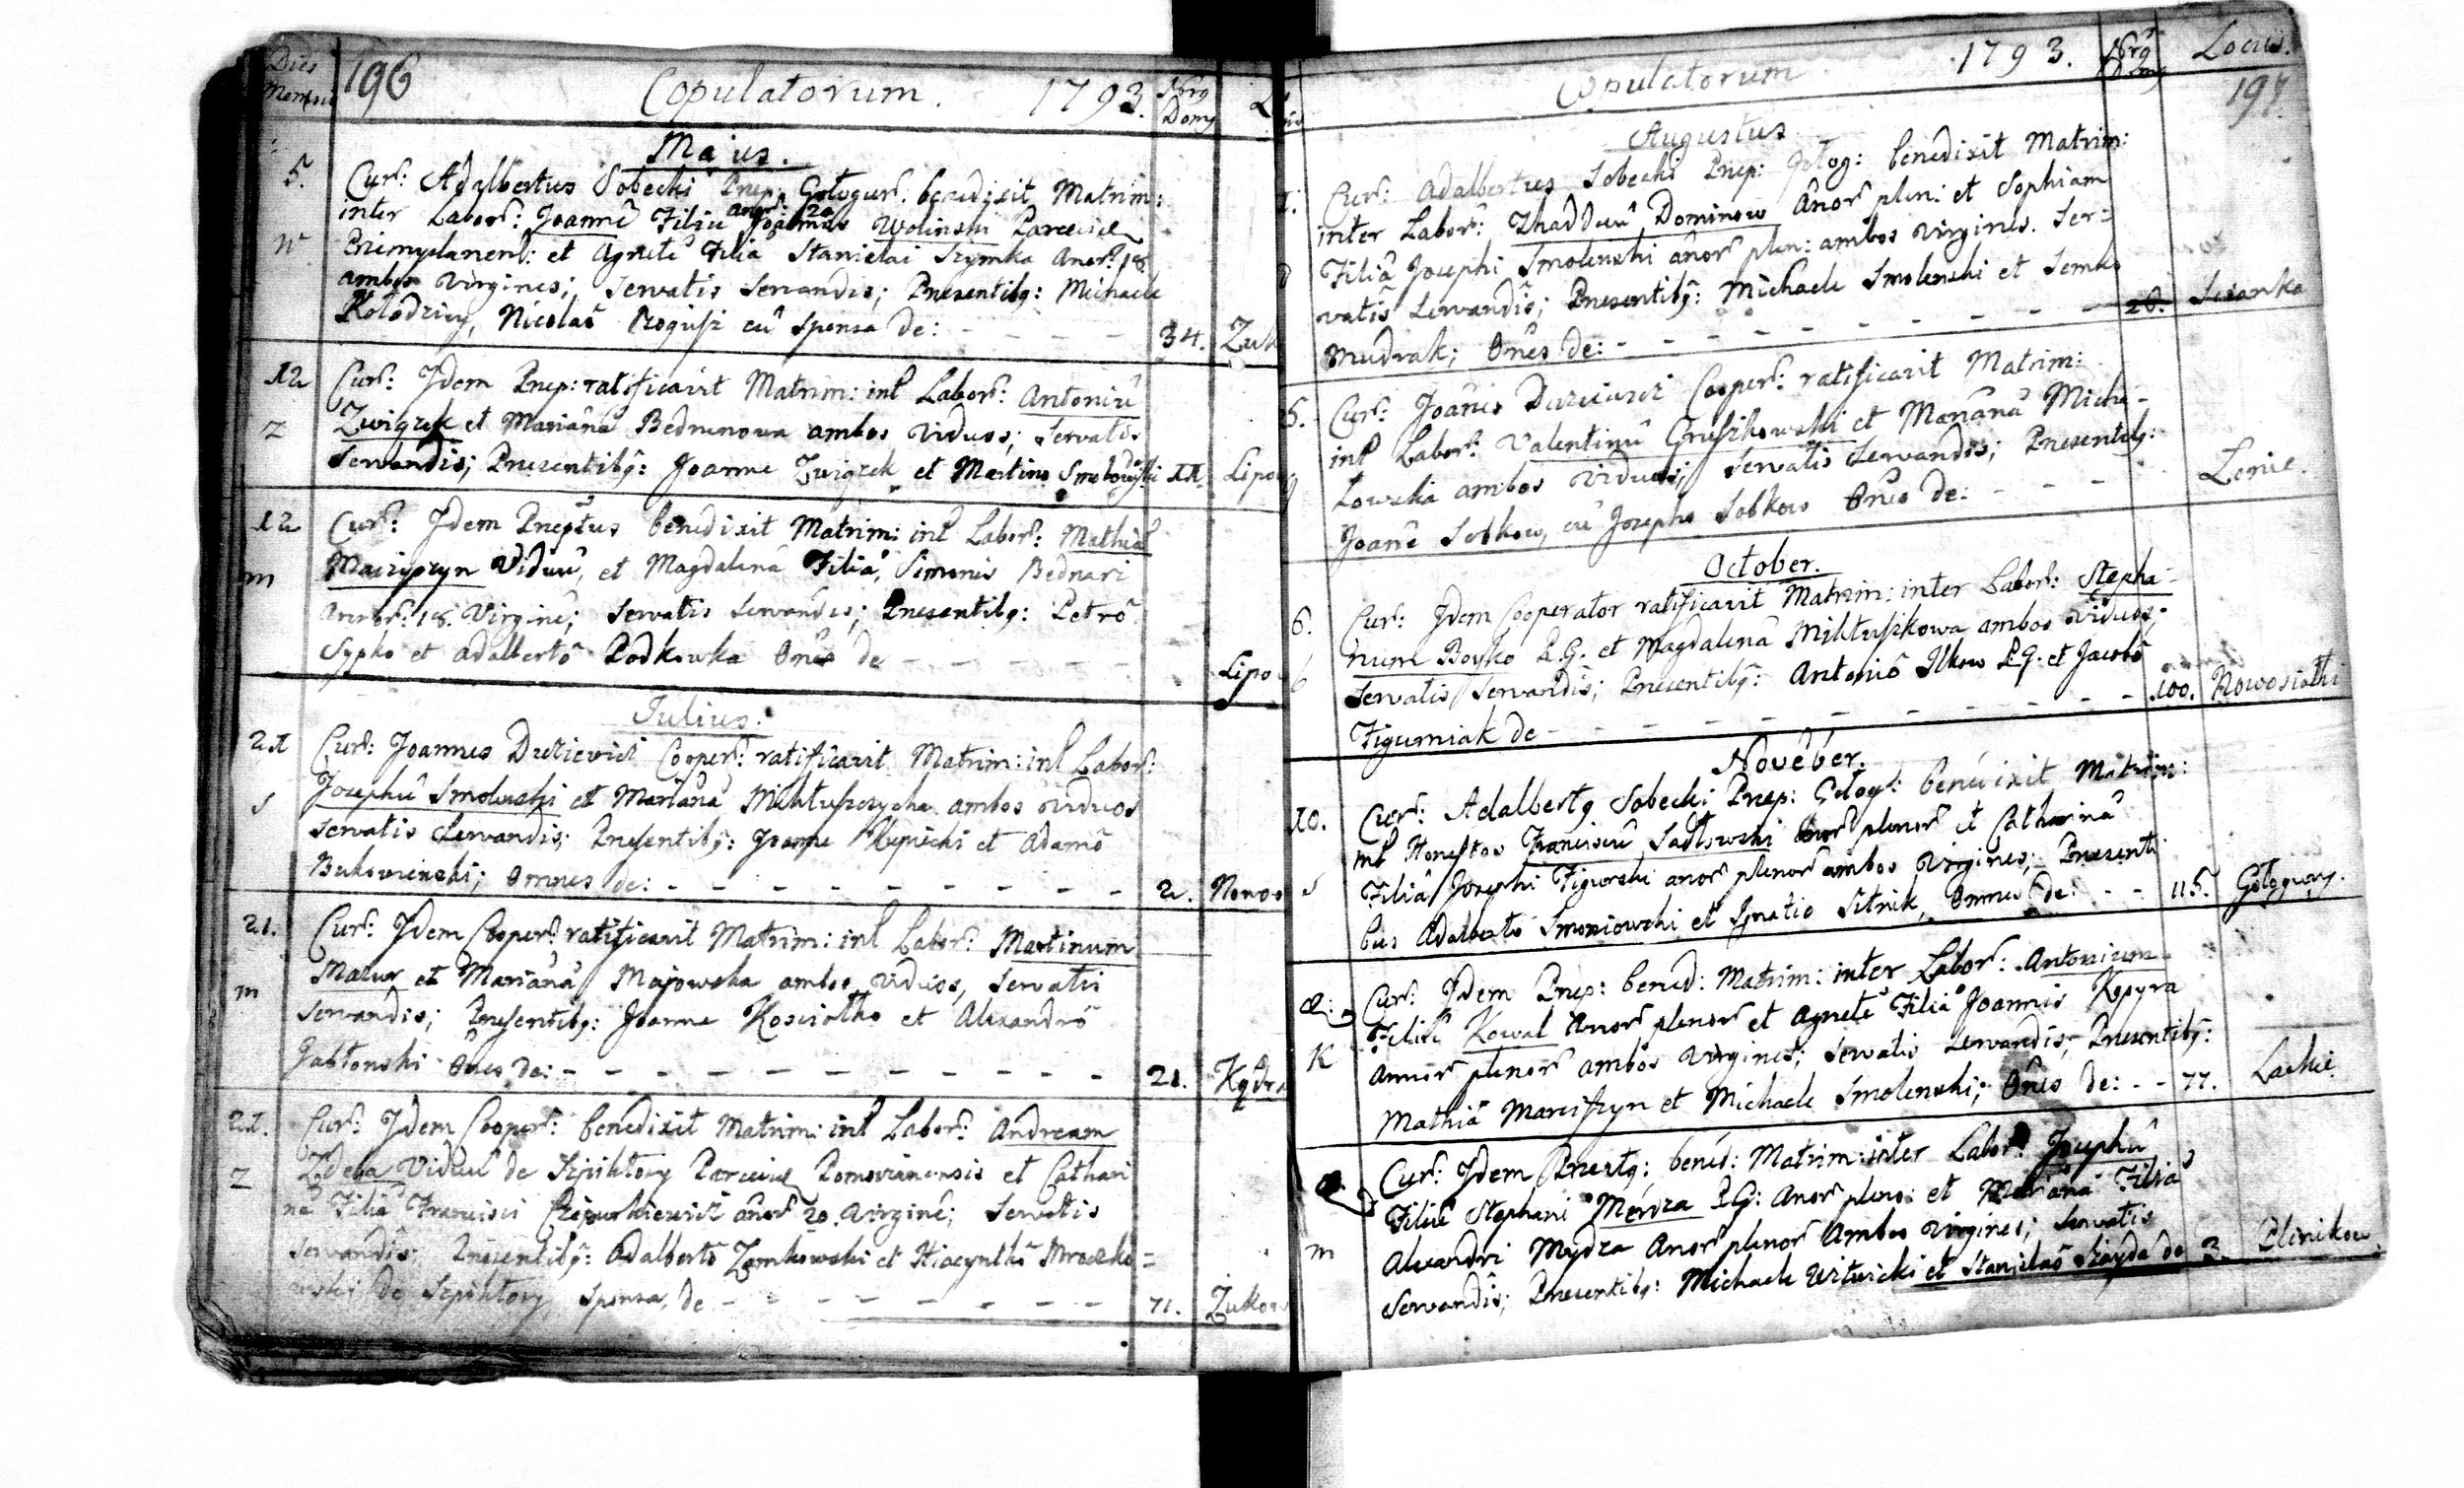 Dies Mensis 196 Copulatorum. 1793. Nrg Domg
Majus.
5. Curs: Adalbertus Sobecki Prep: Gołogur: benedixit Matrim:
inter Labors: Joannē Filiū Joannis Wolinski Parœciæ
annor: 20
W Premyslanens: et Agnetē Filiā Stanislai Szymka Anor: 18
ambos Virgines; Servatis Servandis; Presentibg: Michaele
Kołodziey, Nicolaō cū Sponsa de: 34. Zuk
12 Curs: Idem Prep: ratificavit Matrim: int Labors: Antoniū
Z Związek et Mariānā Bednarowa ambos viduos; Servatis
Servandis; Presentibg: Joanne Związek et Martino 11. Lipo
12 Curs: Idem Preptus benedixit Matrim: int Labors: Mathiā
m Viduū, et Magdalenā Filiā, Simonis Bednari
Annor: 18. Virginē; Servatis Servandis; Presentibg: Petrō
Sypko et Adalbertō Podkowka Ones de Lipo
Julius.
21 Curs: Joannes Coopers: ratificavit Matrim: int Labors:
S Josephū Smolenski et Mariānā ambos viduos
Servatis Servandis; Presentibg: Joanne et Adamō
Omnes de: 2. Nowo
21. Curs: Idem Coopers: ratificavit Matrim: int Labors: Martinum
m Mazur et Mariānā Majowska ambos viduos, Servatis
Servandis; Presentibg: Joanne Kosciołko et Alexandrō
Jabłonski Ones de: 21.
21. Curs: Idem Coopers: benedixit Matrim: int Labors: Andream
Z Zdeba Viduū de Szpikłosy Parœciæ Pomorianensis et Cathari
nā Filiā Francisci anor: 20. Virginē; Servatis
Servandis; Presentibg: Adalbertō Zomkowski et Hiacynthō Mroczko=
wski de Szpikłosy, Sponsa, de 71. Zukow
Copulatorum 1793. Nrg Domg Locus.
197.
Augustus
Curs: Adalbertus Sobecki Prep: Gołog: benedixit Matrim:
inter Labors: Thaddeū Dominow Anor plen: et Sophiam
Filiā Josephi Smolenski anor plen: ambos virgines. Ser=
vatis Servandis; Presentibg: Michaele Smolenski et Semko
Mudrak; Ones de: 28.
5. Curs: Joanes Coopers: ratificavit Matrim:
int Labors: Valentinū Gruszkowski et Mariānā Micha-
łowska ambos viduos; Servatis Servandis; Presentibg:
Joanē Sobkow, cū Josepho Sobkow Ones de:
October.
6. Curs: Idem Cooperator ratificavit Matrim: inter Labors: Stepha-
num Boyko R.G. et Magdalenā Mikłuszkowa ambos viduos;
Servatis Servandis; Presentibg: Antoniō Ilkow R.G. et Jacobō
Figurniak de 100. Nowosiołki
Novēber.
10. Curs: Adalbertg Sobecki Prep: Gołog: benedixit Matrim:
S int Honestos Franciscū Sadłowski Anor plenor et Catharinā
Filiā Josephi Figurski anor plenor ambos virgines; Presenti
bus Adalbertō Smoniowski et Ignatio Sitnik, Omnes de: 115. Gołogury.
Curs: Idem Prep: bened: Matrim: inter Labors: Antonium
K Filiū Kowal Anor plenor et Agnetē Filiā Joannis Kopyra
Annor plenor ambos Virgines; Servatis Servandis; Presentibg:
Mathiā Marciszyn et Michaele Smolenski; Ones de: 77. Lackie.
Curs: Idem bened: Matrim: inter Labors: Josephū
Filiū Stephani R.G: Anor plenor: et Mariānā Filiā
m Alexandri Mydza Anor plenor Ambos virgines; Servatis
Servandis; Presentibg: Michaele et Stanislaō de 3. Plinikow.